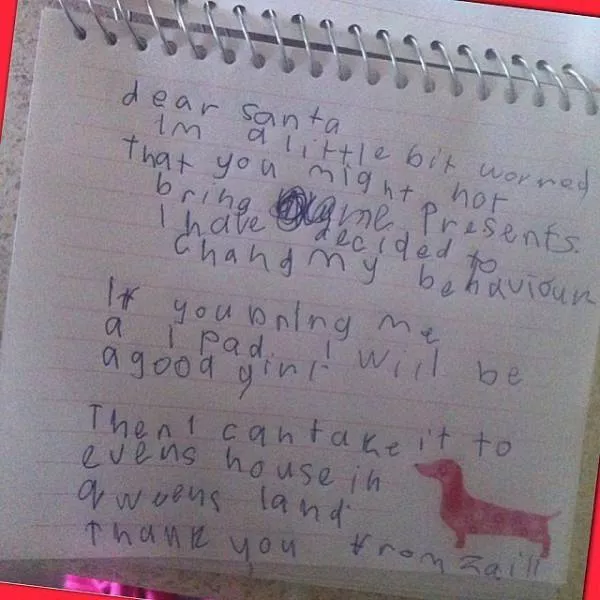 dear santa
Im a little bit worried
that you might not
bring me presents.
I have decided to
chang my behaviour
If you bring me
a i pad. I will be
a good girl.
Then I can take it to
evens house in
qweens land.
thank you from